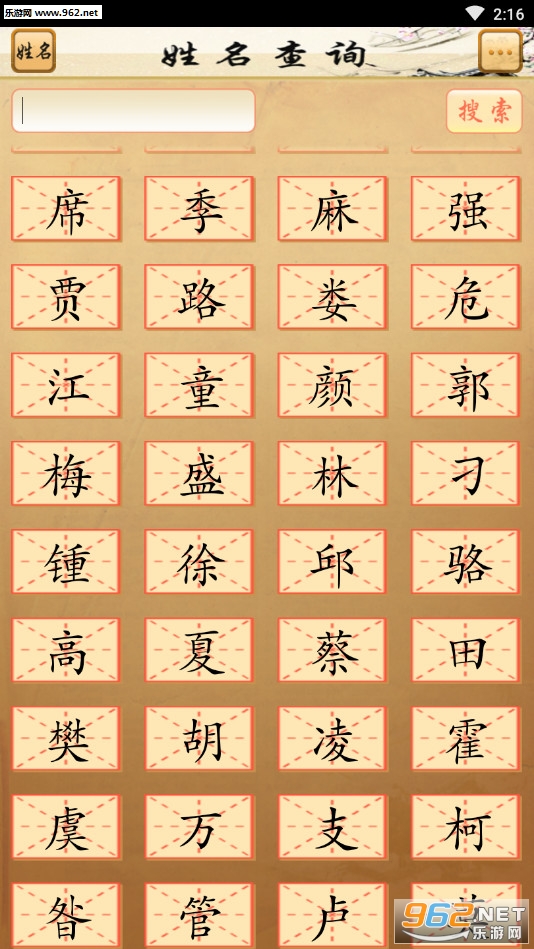 乐游网 www.962.net
2:16
姓名
姓名查询
搜索
席 季 麻 强
贾 路 娄 危
江 童 颜 郭
梅 盛 林 刁
锺 徐 邱 骆
高 夏 蔡 田
樊 胡 凌 霍
虞 万 支 柯
昝 管 卢
962.NET
乐游网